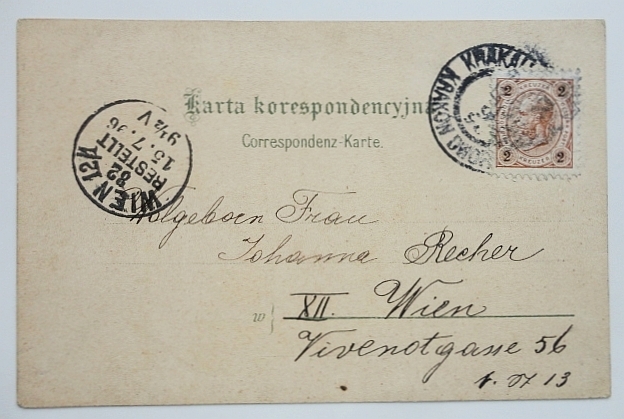 KRAKAU KRAKÓW
2 2
KREUZER
2 2
Karta korespondencyjna
Correspondenz-Karte.
WIEN 12/1
82
BESTELLT
15.7.96
9½ V
Wolgeboren Frau
Johanna Recher
w XII. Wien
Vivenotgasse 56
t. 13